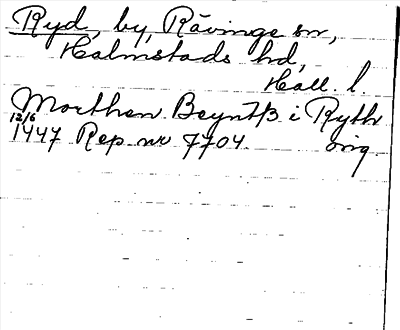 Ryd, by, Rävinge sn,
Halmstads hd,
Hall. l.
Morthen Beyntß i Ryth
12/6 1447 Rep nr 7704. orig.